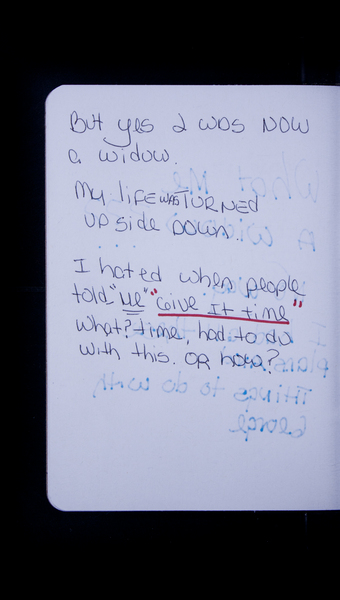 But yes I was NOW
a widow.
My LIFE was TURNED
UPSide DOWN.
I hated when people
told "ME" "Give It time"
What? time, had to do
with this. OR how?